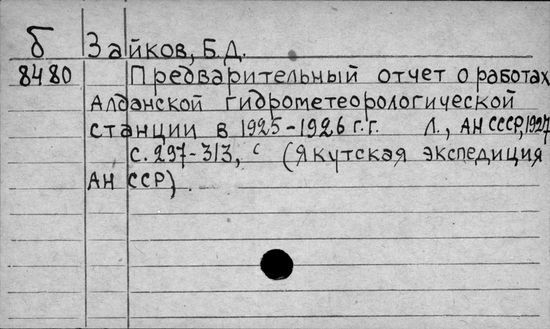 б Зайков, Б.Д.
8480 Предварительный отчет о работах
Алданской гидрометеорологической
станции в 1925-1926 г.г. Л., АН СССР, 1927
с. 297-313, с (Якутская экспедиция
АН ССР).